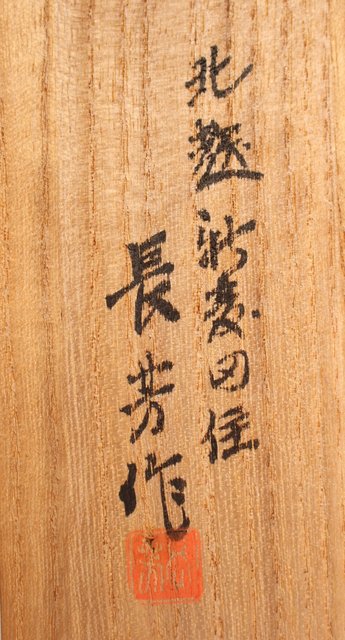 北越新発田住
長芳作